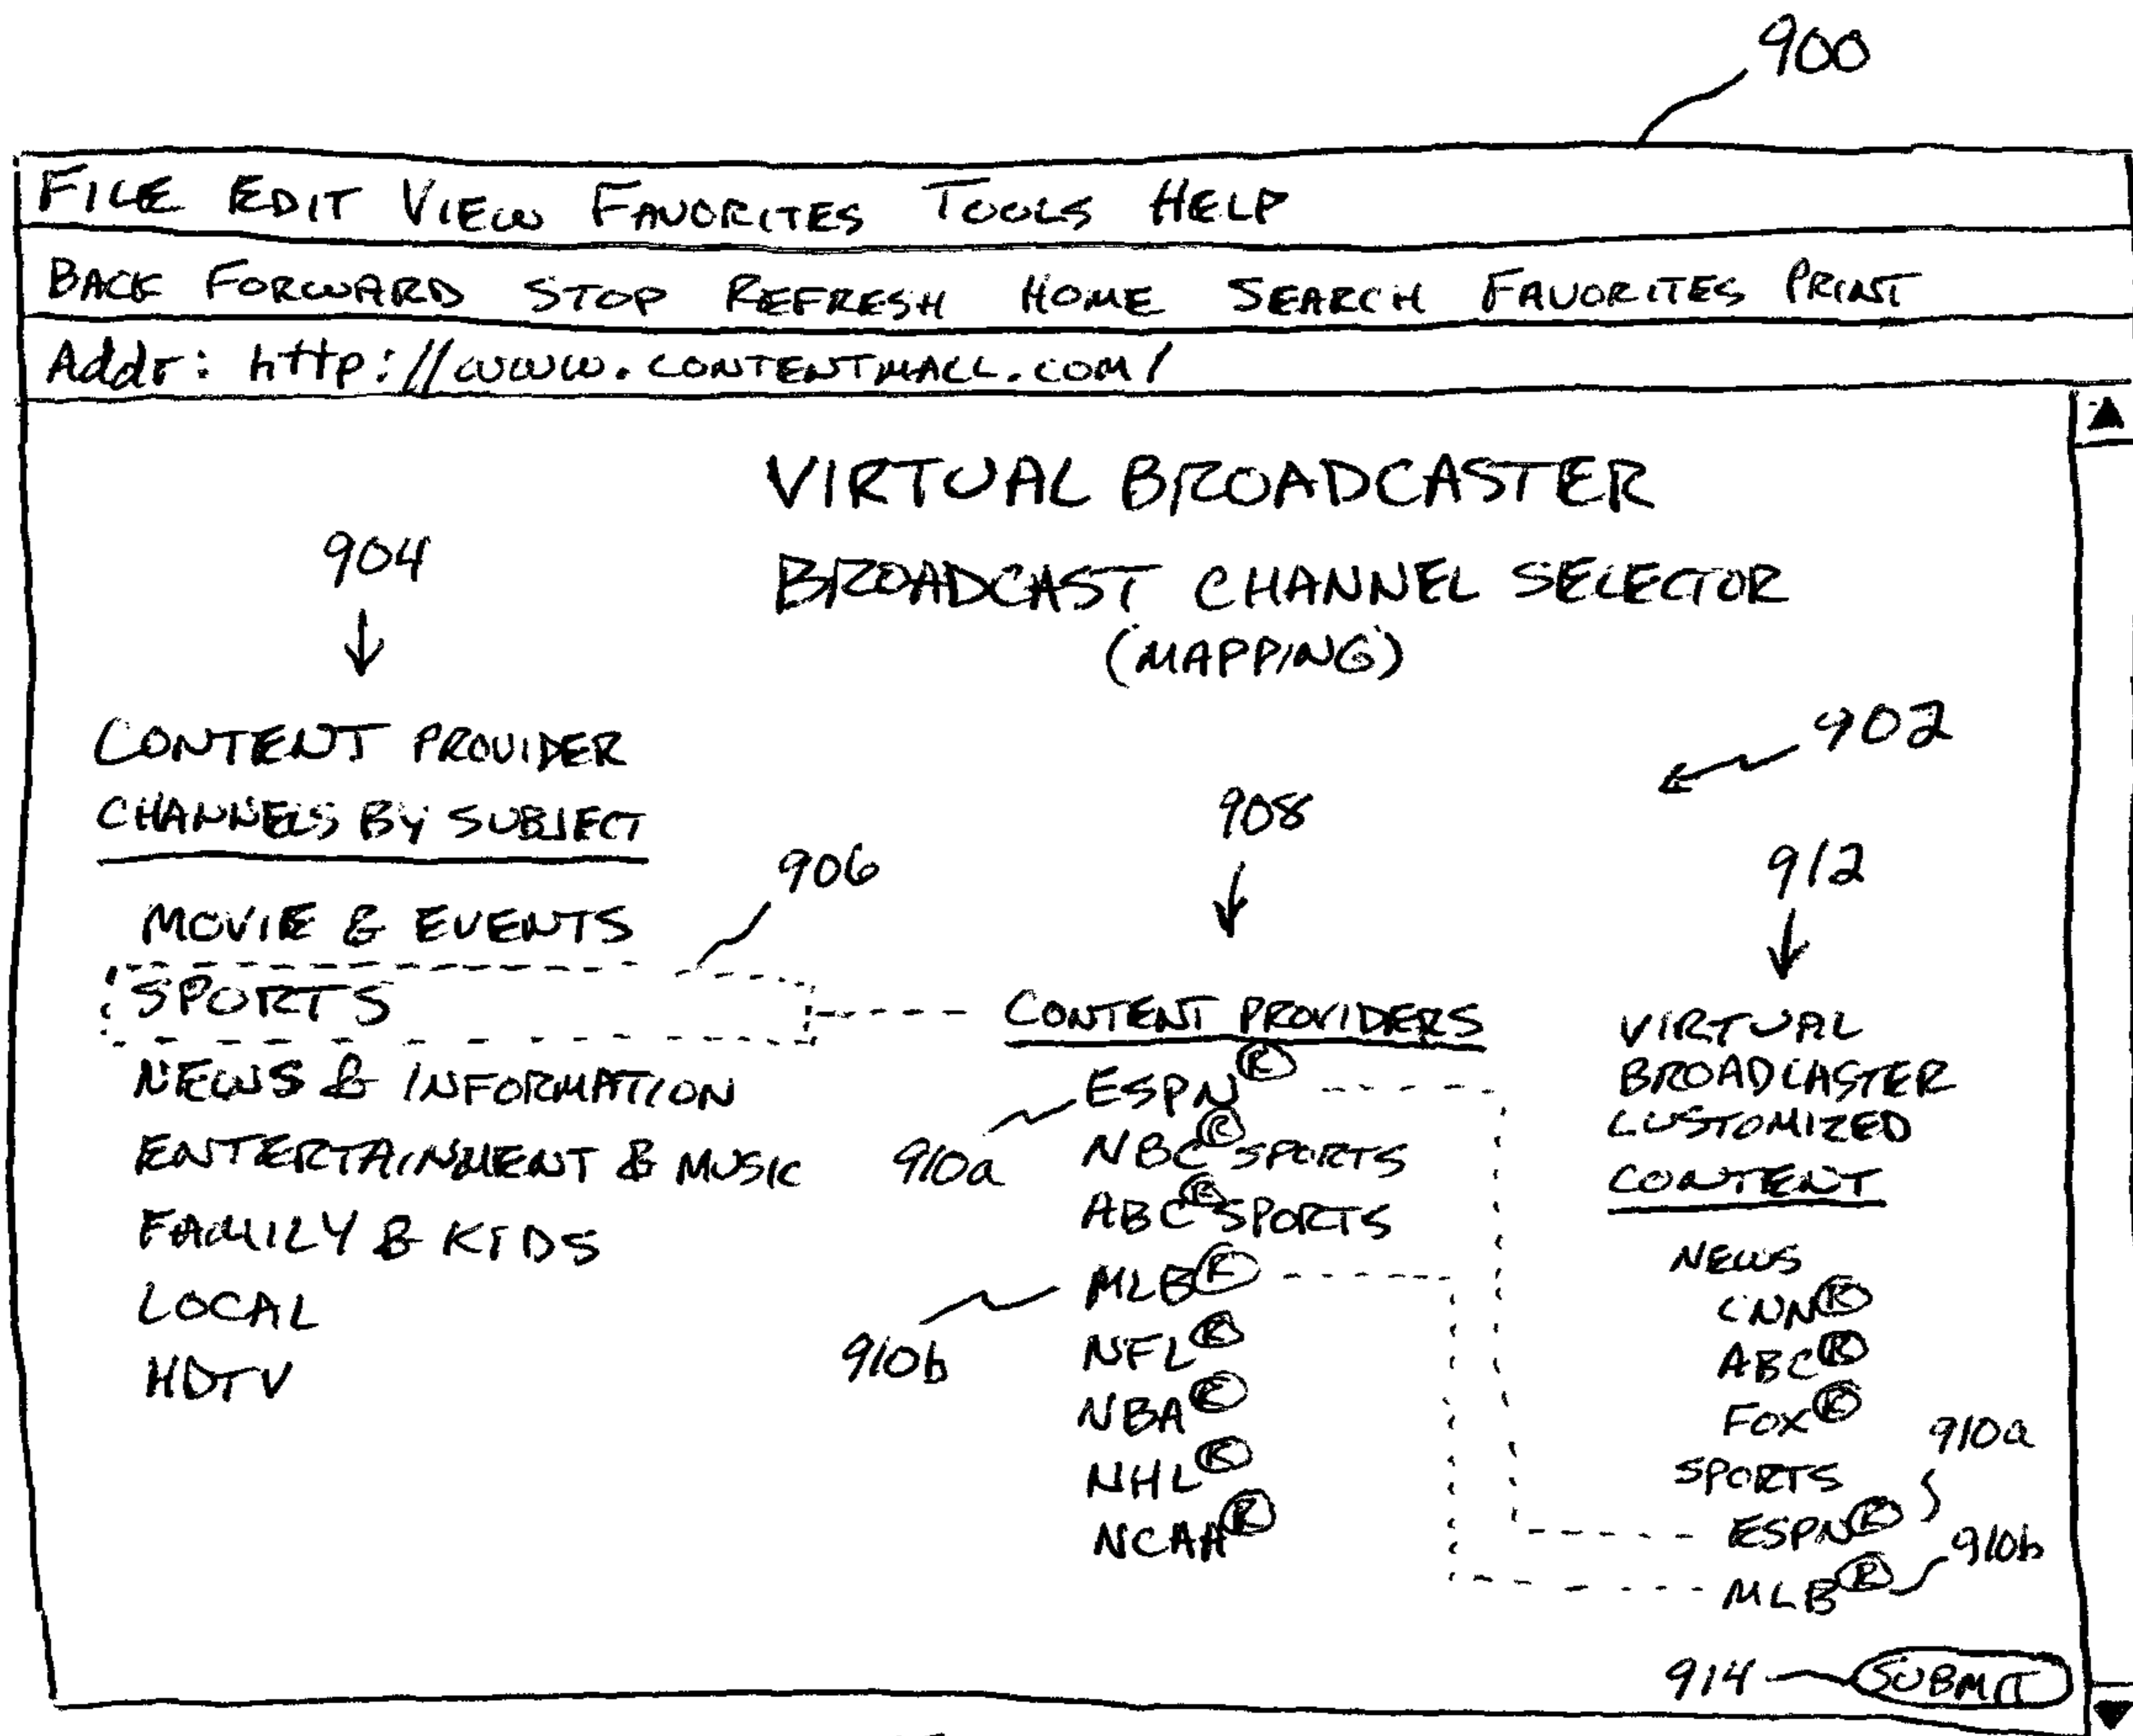 900
FILE EDIT VIEW FAVORITES TOOLS HELP
BACK FORWARD STOP REFRESH HOME SEARCH FAVORITES PRINT
Addr: http://www.CONTENTMALL.COM/
VIRTUAL BROADCASTER
BROADCAST CHANNEL SELECTOR
(MAPPING)
904
CONTENT PROVIDER
CHANNELS BY SUBJECT
906
MOVIE & EVENTS
SPORTS
NEWS & INFORMATION
ENTERTAINMENT & MUSIC
FAMILY & KIDS
LOCAL
HDTV
902
908
CONTENT PROVIDERS
ESPN®
910a
NBC® SPORTS
ABC® SPORTS
MLB®
910b
NFL®
NBA®
NHL®
NCAA®
912
VIRTUAL
BROADCASTER
CUSTOMIZED
CONTENT
NEWS
CNN®
ABC®
FOX®
910a
SPORTS
ESPN®
910b
MLB®
914 SUBMIT